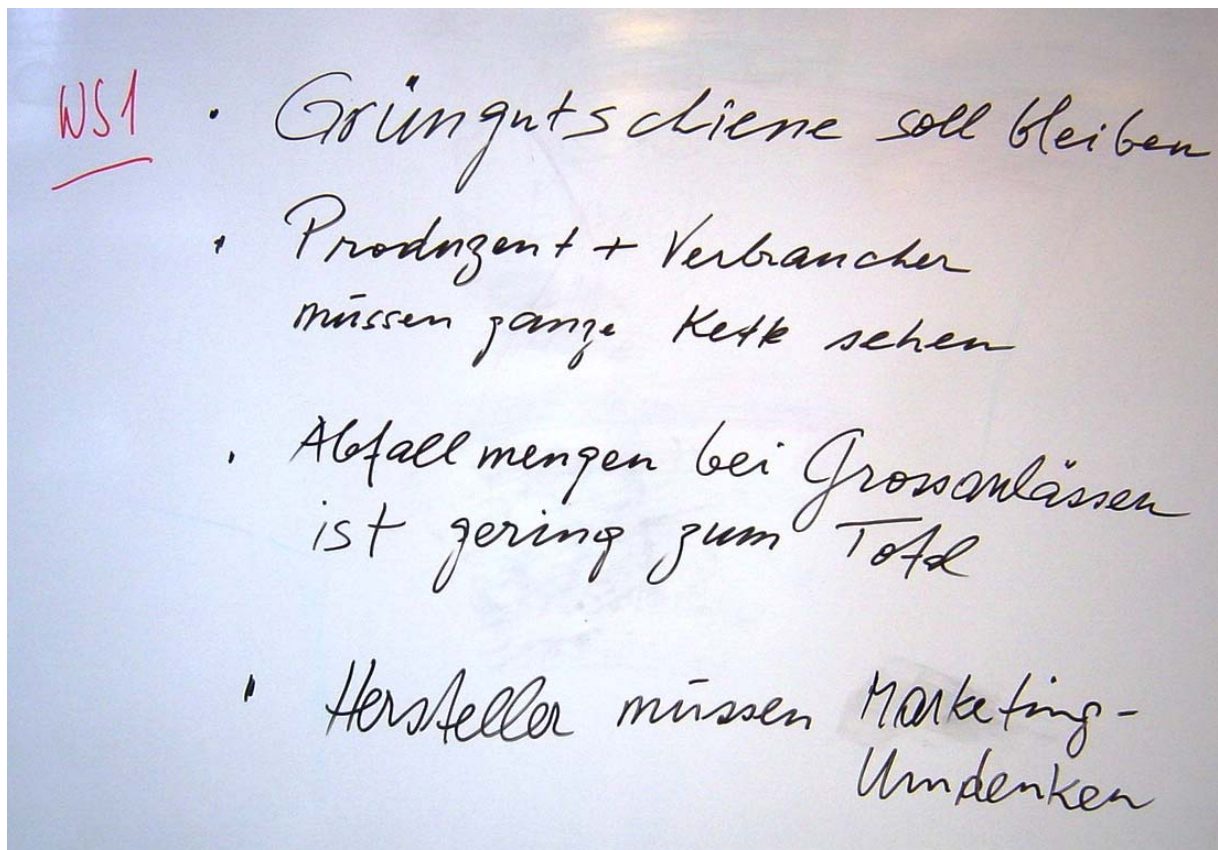 WS1 · Grüngutschiene soll bleiben
· Produzent + Verbraucher
müssen ganze Kette sehen
· Abfallmengen bei Grossanlässen
ist gering zum Total
· Hersteller müssen Marketing-
Umdenken